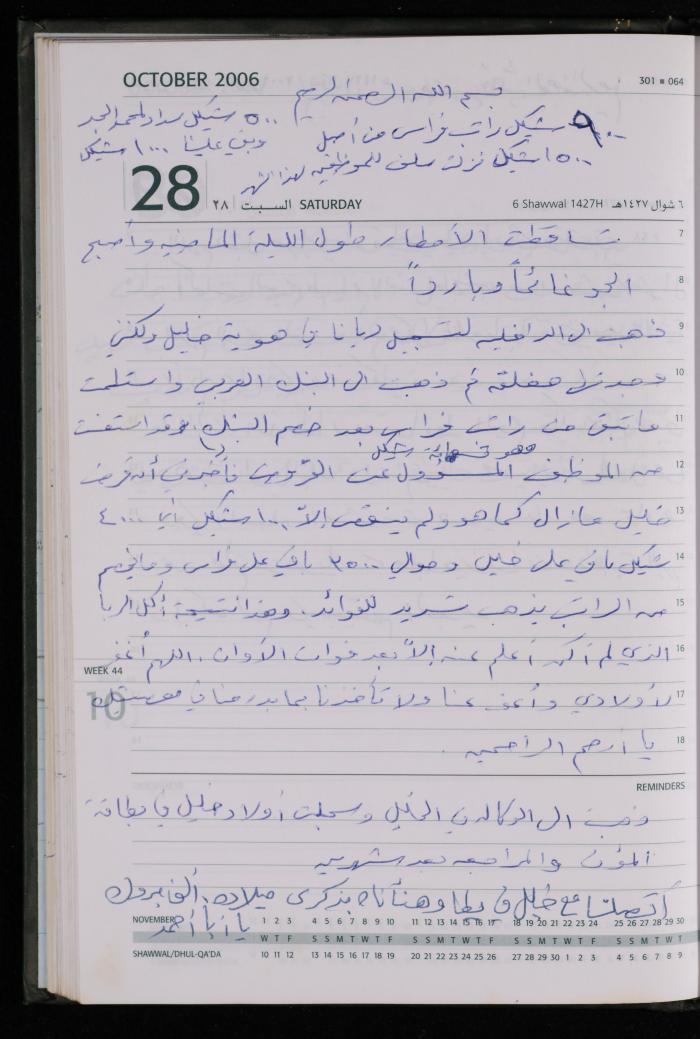 OCTOBER 2006
301 ▪ 064
بسم الله الرحمن الرحيم
٩٠٠ شيكل راتب فراس من أصل
١٥٠٠ شيكل نزلت سلف للموظفين لهذا الشهر
٥٠٠ شيكل سداد لمحمد
وبقي علينا ١٠٠٠ شيكل
28 ٢٨ السبت SATURDAY 6 Shawwal 1427H ٦ شوال ١٤٢٧هـ
7 تساقطت الأمطار طول الليلة الماضية وأصبح
8 الجو غائماً وبارداً
9 ذهبت الى الداخلية لتسجيل ديانا في هوية خليل ولكني
10 وجدتها مغلقة ثم ذهبت الى البنك العربي واستلمت
11 ما تبقى من راتب فراس بعد خصم البنك وقد استفت
وهو تسعمائة شيكل
12 من الموظف المسؤول عن القروض فأخبرني أن قرض
13 خليل مازال كما هو ولم ينقص إلاّ ١٠٠٠ شيكل أي ٤٠٠٠
14 شيكل باقي على خليل وحوالي ٣٥٠٠ باقي على فراس وما خصم
15 من الراتب يذهب تسديد للفوائد. وهذا نتيجة أكل الربا
16 الذي لم أكن أعلم عنه إلاّ بعد فوات الأوان. اللهم أغفر
WEEK 44
10
17 لأولادي وأعف عنا ولا تأخذنا بما بدر منا في معصيتك
18 يا أرحم الراحمين.
REMINDERS
ذهبت الى الوكالة في الخليل وسجلت أولاد خليل في بطاقة
المؤن والمراجعة بعد شهرين
أتصلنا مع خليل في وهنأناه بذكرى ميلاده. ألف مبروك
يا أبا أحمد
NOVEMBER 1 2 3 4 5 6 7 8 9 10 11 12 13 14 15 16 17 18 19 20 21 22 23 24 25 26 27 28 29 30
W T F S S M T W T F S S M T W T F S S M T W T F S S M T W T
SHAWWAL/DHUL-QA'DA 10 11 12 13 14 15 16 17 18 19 20 21 22 23 24 25 26 27 28 29 30 1 2 3 4 5 6 7 8 9